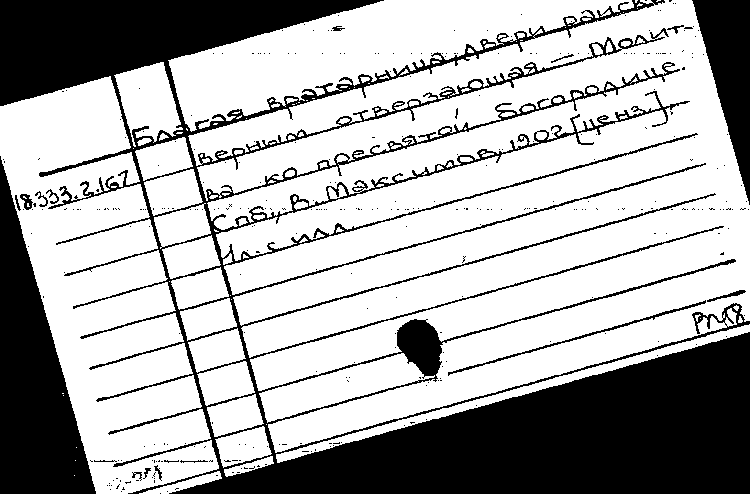 Благая вратарница, двери райския
верным отверзающая. — Молит-
ва ко пресвятой богородице.
18.333.2.167
Спб., В. Максимов, 1902 [ценз.].
1л. с илл.